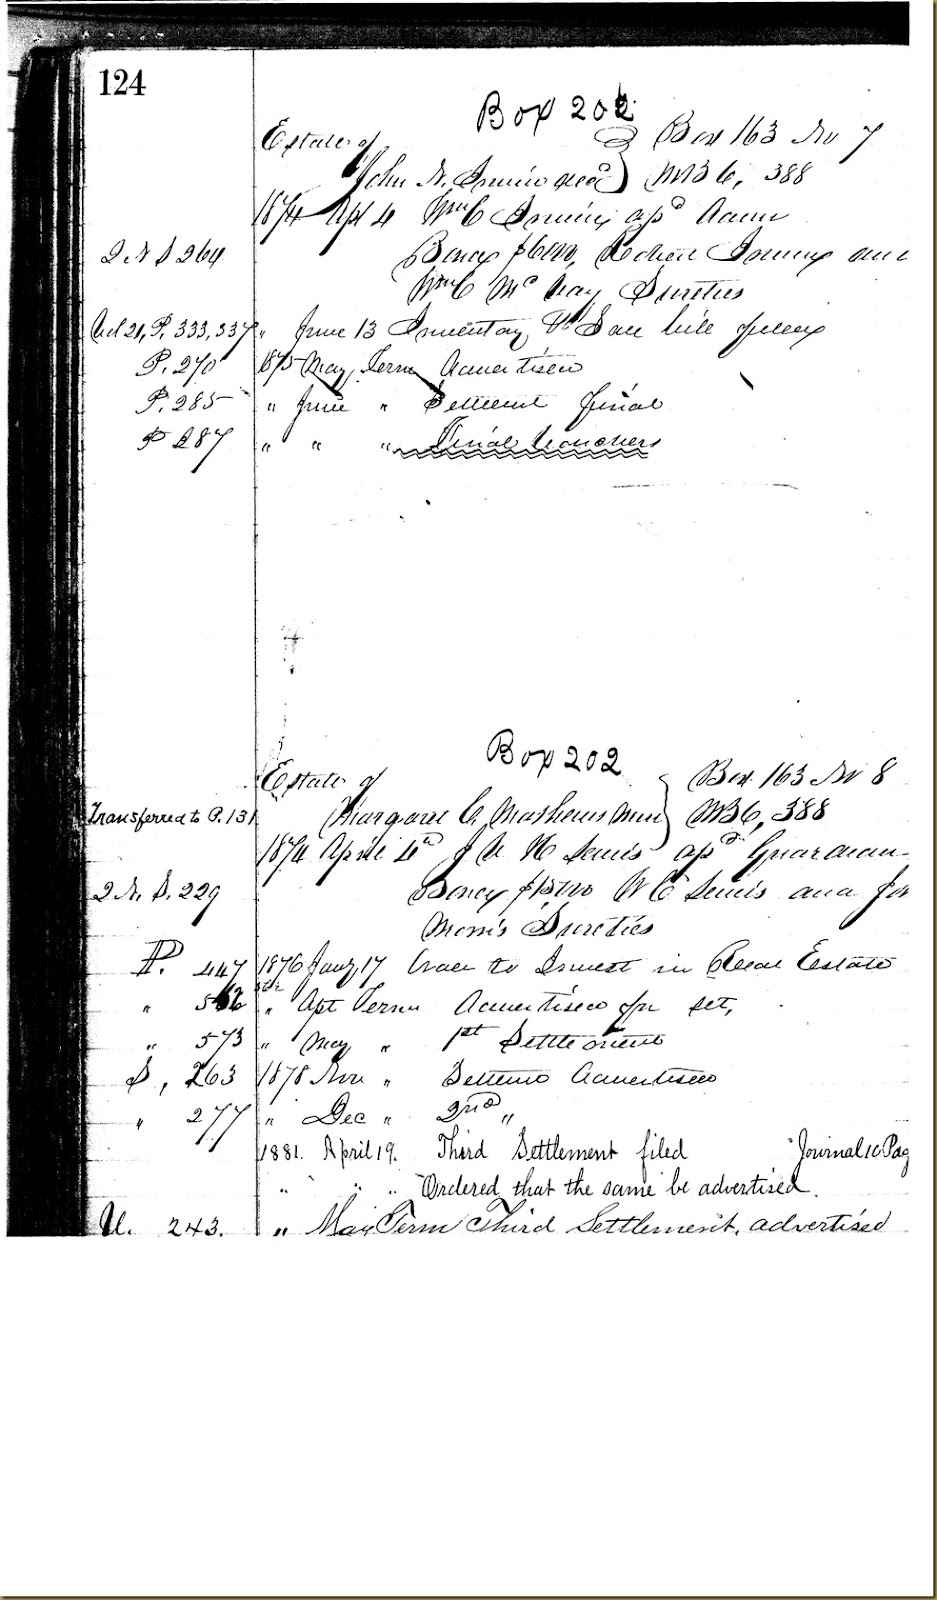 124
Box 202
Estate of Box 163 No 7
John N. Irwin decd MB 6, 388
1874 Apl 4 Wm C Irwin apd Admr
2 N S 264 Bond $600, Robert Irwin and
Wm C McNay Sureties
Vol 21, P. 333, 337 " June 13 Inventory & Sale bill filed
P. 270 1875 May Term Advertised
P. 285 " June " Settlement final
P 287 " " " Final Vouchers
Box 202
Estate of Box 163 No 8
Transferred to P. 131 Margaret C. Mathews Minr MB 6, 388
1874 April 4th J H Lewis apd Guardian
2 N. S. 229 Bond W C Lewis and
Morris Sureties
P. 447 1876 Jany 17 Order to Invest in Real Estate
" " Apl Term Advertised for set,
" 573 " May " 1st Settlement
S, 263 1878 Nov " Settlmt Advertised
" 277 " Dec " 2nd "
1881. April 19. Third Settlement filed Journal 10 Pag
" " " Ordered that the same be advertised.
U. 243. " May Term Third Settlement, advertised